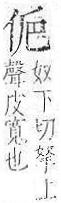 奴下切拏上
聲皮寬也